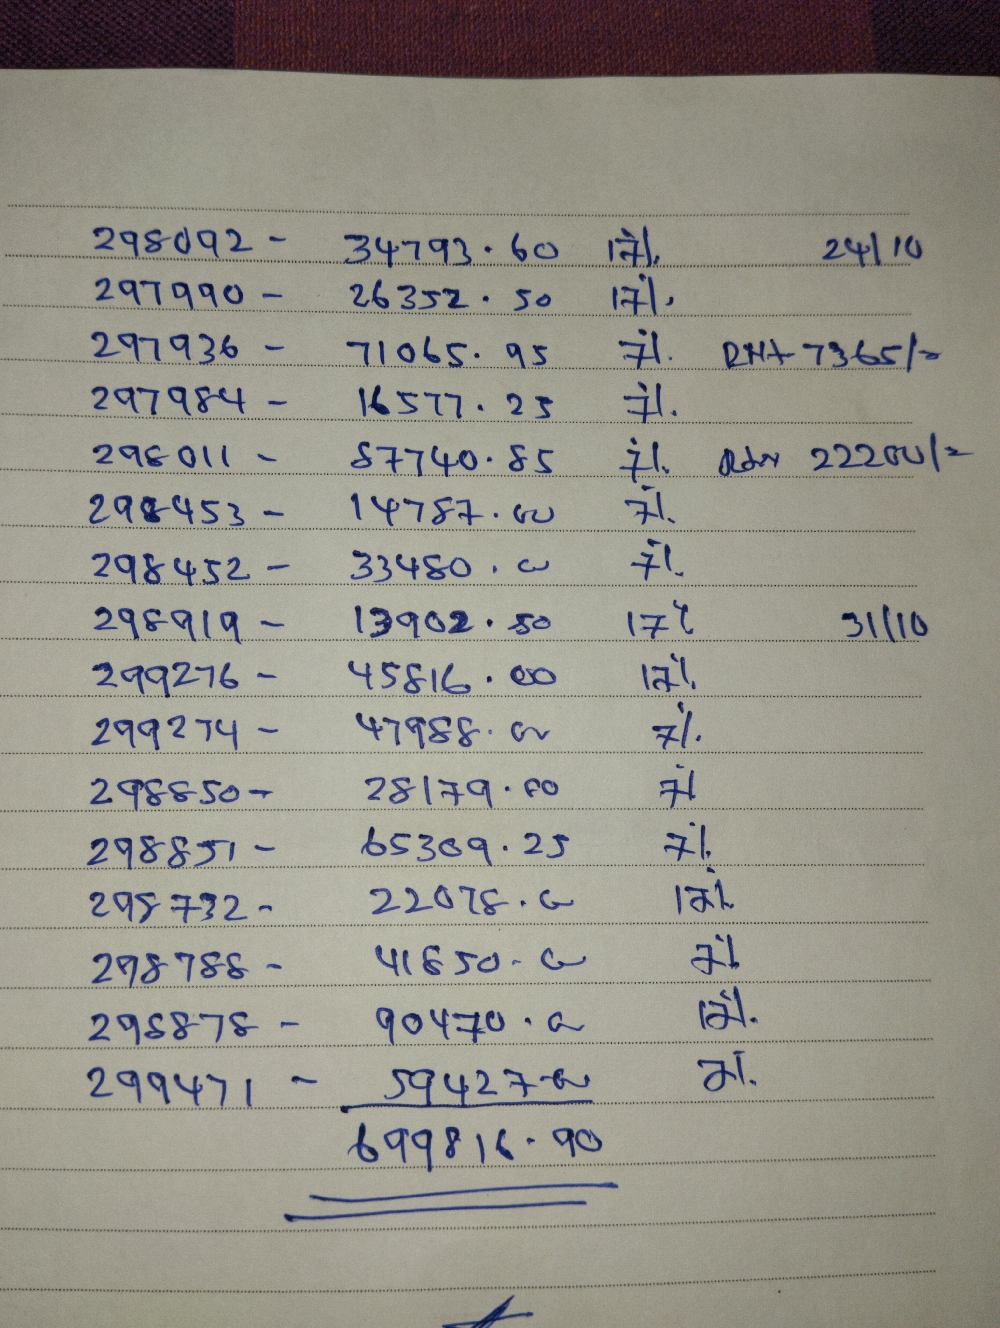 298092 - 34793.60 17%. 24/10
297990 - 26352.50 17%.
297936 - 71065.95 7%. RHA 7365/=
297984 - 16577.25 7%.
298011 - 87740.85 7%. 22200/=
298453 - 14787.00 7%.
298452 - 33480.00 7%.
298919 - 13902.50 17% 31/10
299276 - 45816.00 17%.
299274 - 47988.00 7%.
298850 - 28179.00 7%
298851 - 65309.25 7%.
298732 - 22078.00 17%.
298788 - 41850.00 7%
298878 - 90470.00 17%.
299471 - 59427.00 7%.
699816.90